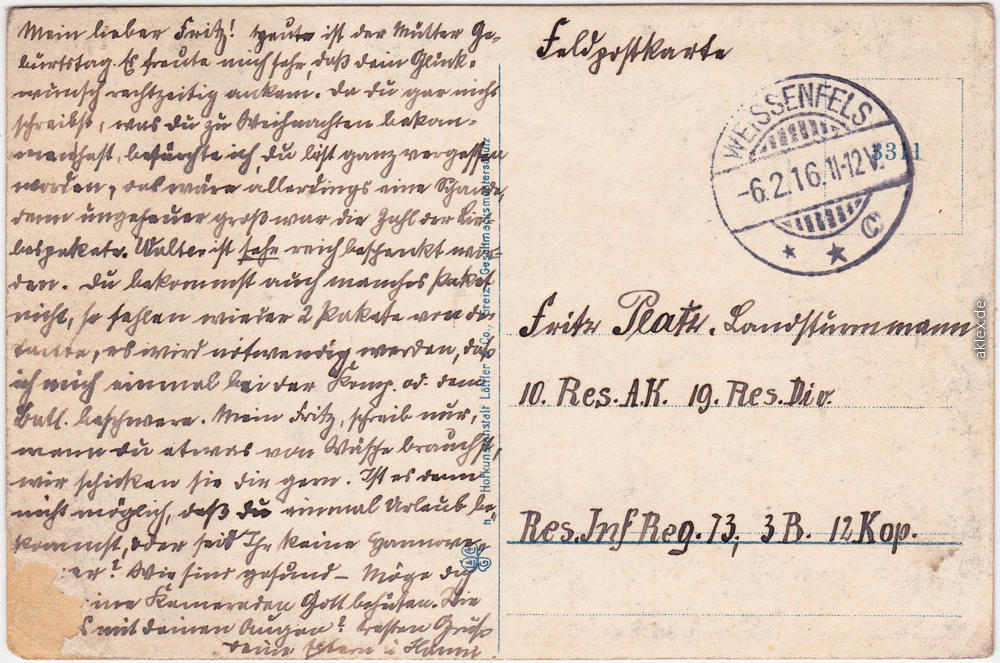 Mein lieber Fritz! Heute ist der Mutter Ge-
burtstag. Es freute mich sehr, daß dein Glück-
wunsch rechtzeitig ankam. Da du gar nicht
schreibst, was du zu Weihnachten bekom-
men hast, befürchte ich, du bist ganz vergessen
worden, das wäre allerdings eine Schande,
denn ungeheuer groß war die Zahl der Lie-
bespakete. Walter ist sehr reich beschenkt wor-
den. Du bekommst auch manches Paket
nicht, so fehlen wieder 2 Pakete von der
Tante, es wird notwendig werden, daß
ich mich einmal bei der Komp. od. dem
Batl. beschwere. Mein Fritz, schreib nur,
wenn du etwas von Wäsche brauchst,
wir schicken sie dir gern. Ist es denn
nicht möglich, daß du einmal Urlaub be-
kommst, oder seid Ihr keine Hannove-
er? Wir sind gesund – Möge dich
eine Kameraden Gott behüten. Wie
s mit deinen Augen? Besten Gruß
deine Eltern
Hofkunstanstalt Löffler & Co., Greiz. Geschmacksmusterschutz
Feldpostkarte
WEISSENFELS
-6.2.16.11-12V.
C
3311
Fritz Platz. Landsturmmann
10. Res. A.K. 19. Res. Div.
Res. Inf Reg. 73, 3 B. 12 Kop.
aklex.de